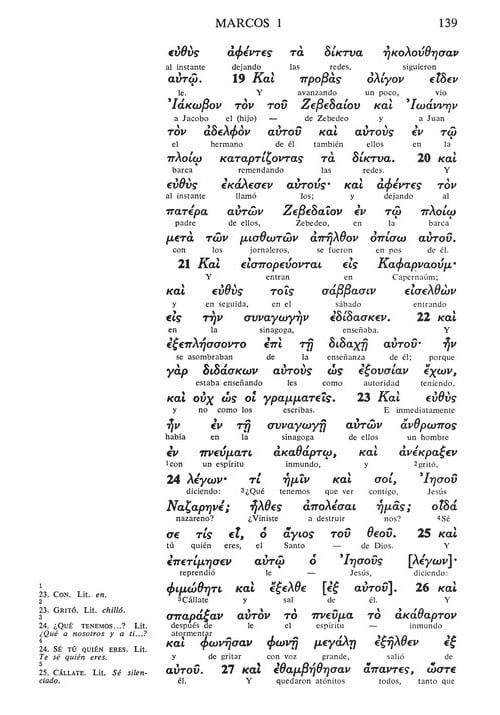 MARCOS 1
139
εὐθὺς ἀφέντες τὰ δίκτυα ἠκολούθησαν
al instante dejando las redes, siguieron
αὐτῷ. 19 Καὶ προβὰς ὀλίγον εἶδεν
le. Y avanzando un poco, vio
Ἰάκωβον τὸν τοῦ Ζεβεδαίου καὶ Ἰωάννην
a Jacobo el (hijo) — de Zebedeo y a Juan
τὸν ἀδελφὸν αὐτοῦ καὶ αὐτοὺς ἐν τῷ
el hermano de él también ellos en la
πλοίῳ καταρτίζοντας τὰ δίκτυα. 20 καὶ
barca remendando las redes. Y
εὐθὺς ἐκάλεσεν αὐτούς· καὶ ἀφέντες τὸν
al instante llamó los; y dejando al
πατέρα αὐτῶν Ζεβεδαῖον ἐν τῷ πλοίῳ
padre de ellos, Zebedeo, en la barca
μετὰ τῶν μισθωτῶν ἀπῆλθον ὀπίσω αὐτοῦ.
con los jornaleros, se fueron en pos de él.
21 Καὶ εἰσπορεύονται εἰς Καφαρναούμ·
Y entran en Capernaúm;
καὶ εὐθὺς τοῖς σάββασιν εἰσελθὼν
y en seguida, en el sábado entrando
εἰς τὴν συναγωγὴν ἐδίδασκεν. 22 καὶ
en la sinagoga, enseñaba. Y
ἐξεπλήσσοντο ἐπὶ τῇ διδαχῇ αὐτοῦ· ἦν
se asombraban de la enseñanza de él; porque
γὰρ διδάσκων αὐτοὺς ὡς ἐξουσίαν ἔχων,
estaba enseñando les como autoridad teniendo,
καὶ οὐχ ὡς οἱ γραμματεῖς. 23 Καὶ εὐθὺς
y no como los escribas. E inmediatamente
ἦν ἐν τῇ συναγωγῇ αὐτῶν ἄνθρωπος
había en la sinagoga de ellos un hombre
ἐν πνεύματι ἀκαθάρτῳ, καὶ ἀνέκραξεν
1con un espíritu inmundo, y 2gritó,
24 λέγων· τί ἡμῖν καὶ σοί, Ἰησοῦ
diciendo: 3¿Qué tenemos que ver contigo, Jesús
Ναζαρηνέ; ἦλθες ἀπολέσαι ἡμᾶς; οἶδά
nazareno? ¿Viniste a destruir nos? 4Sé
σε τίς εἶ, ὁ ἅγιος τοῦ θεοῦ. 25 καὶ
tú quién eres, el Santo — de Dios. Y
ἐπετίμησεν αὐτῷ ὁ Ἰησοῦς [λέγων]·
reprendió le — Jesús, diciendo:
φιμώθητι καὶ ἔξελθε [ἐξ αὐτοῦ]. 26 καὶ
5Cállate y sal de él. Y
σπαράξαν αὐτὸν τὸ πνεῦμα τὸ ἀκάθαρτον
después de atormentar el espíritu — inmundo
καὶ φωνῆσαν φωνῇ μεγάλῃ ἐξῆλθεν ἐξ
y de gritar con voz grande, salió de
αὐτοῦ. 27 καὶ ἐθαμβήθησαν ἅπαντες, ὥστε
él. Y quedaron atónitos todos, tanto que
1
23. CON. Lit. en.
2
23. GRITÓ. Lit. chilló.
3
24. ¿QUÉ TENEMOS...? Lit.
¿Qué a nosotros y a ti...?
4
24. SÉ TÚ QUIÉN ERES. Lit.
Te sé quién eres.
5
25. CÁLLATE. Lit. Sé silen-
ciado.